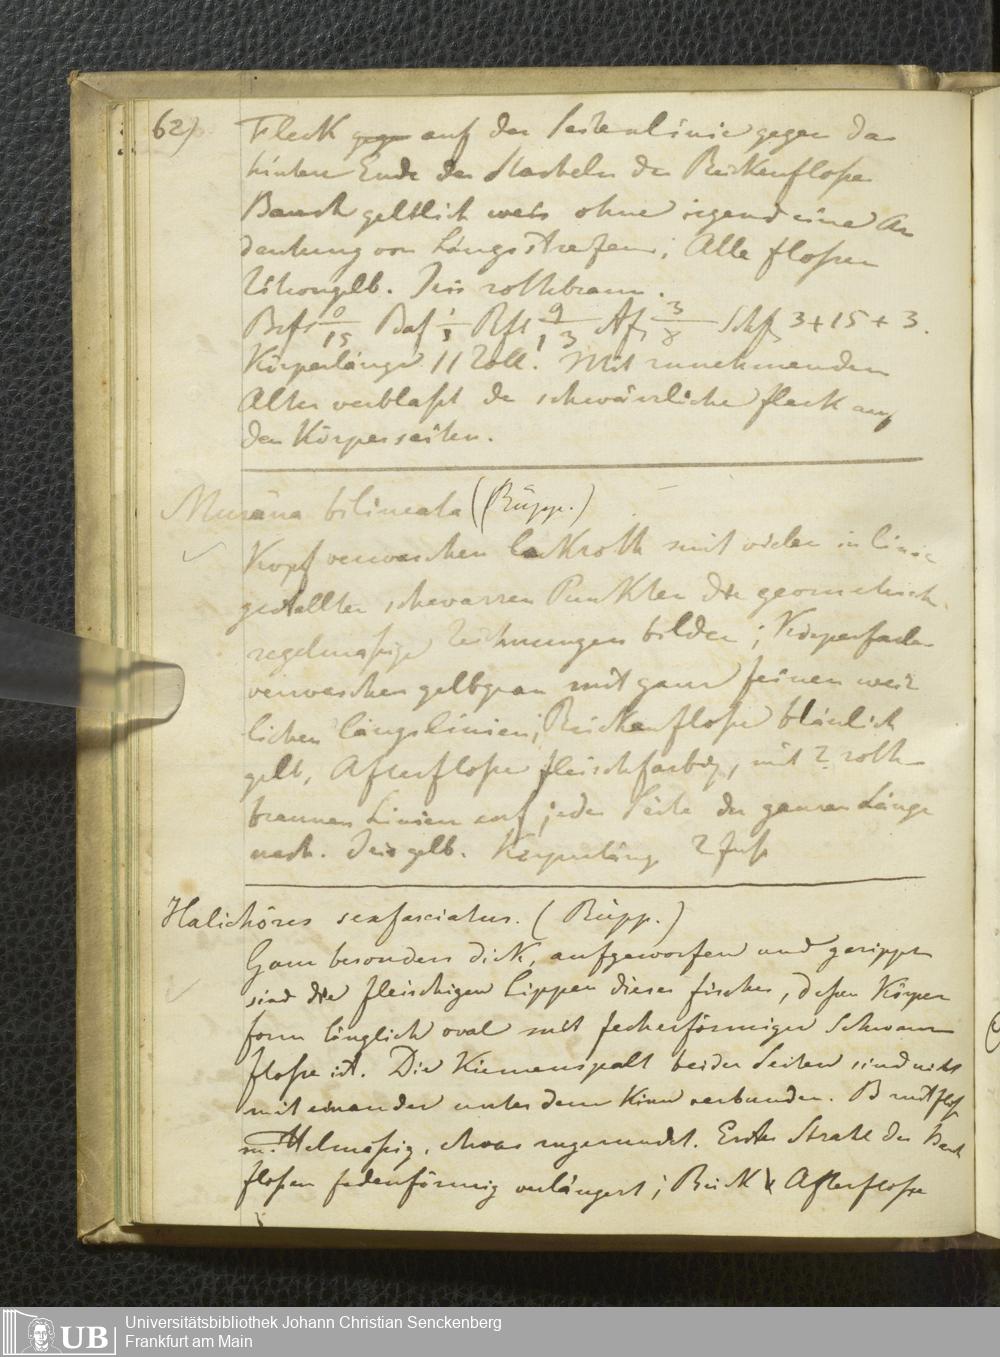 62)
Fleck gegen auf der Seitenlinie gegen das
hintere Ende der Stacheln der Rückenfloße
Bauch gelblich weis ohne irgend eine An
deutung von Längsstreifen; Alle floßen
Zitrongelb. Iris rothbraun.
Brfl 0/15 Baf 1/5 Rfl 9/13 Afl 3/8 Schfl 3+15+3.
Körperlänge 11 Zoll. Mit zunehmendem
Alter verblaßt der schwärzliche fleck auf
den Körperseiten.
Muräna bilineata (Rüpp.)
Kopf verwaschen lackroth mit vielen in linie
gestellten schwarzen Punkten die geometrisch
regelmaßige Zeichnungen bilden; Körperfarbe
verwaschen gelbgrau mit ganz feinen weis
lichen längslinien; Rückenfloße bläulich
gelb, Afterfloße fleischfarbig, mit 2 roth
braunen Linien auf jeder Seite der ganzen Länge
nach. Iris gelb. Körperläng 2 Fuß
Halichöres sexfasciatus. (Rüpp.)
Ganz besonders dick, aufgeworfen und gerippt
sind die fleischigen Lippen dieses fisches, deßen Körper
form länglich oval mit fecherförmiger Schwanz
floße ist. Die Kiemenspalt beider Seiten sind nicht
mit einander unter dem Kinn verbunden. Brustfloß
mittelmäßig, etwas zugerundet. Erster Strahl der Bauch
floßen fadenförmig verlängert; Rück & Afterfloße
UB
Universitätsbibliothek Johann Christian Senckenberg
Frankfurt am Main